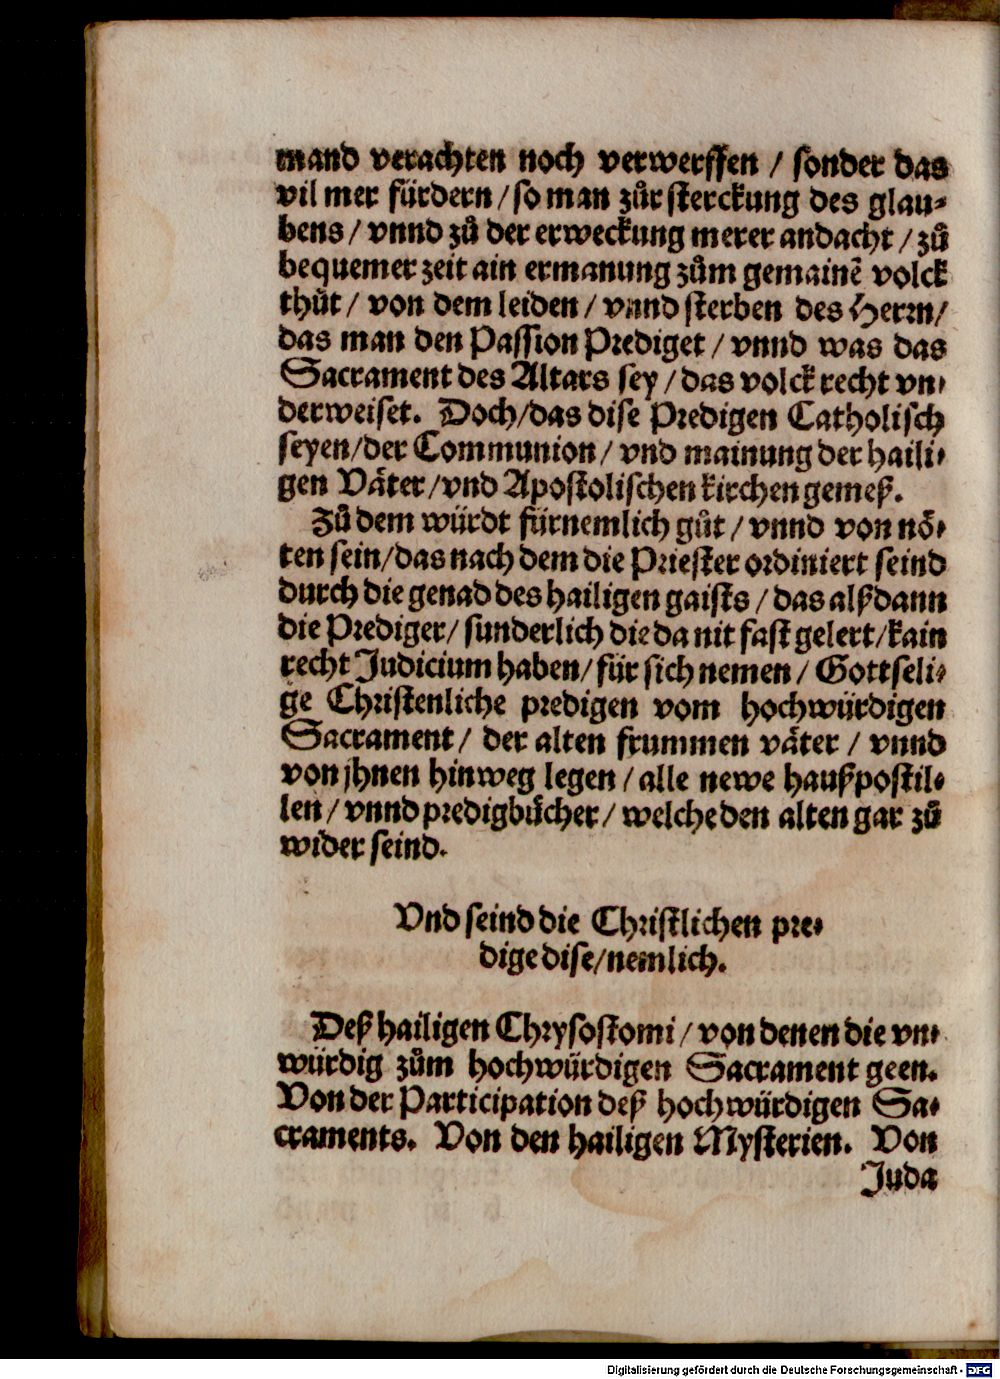 mand verachten noch verwerffen / sonder das
vil mer fürdern / so man zůr sterckung des glau⸗
bens / vnnd zů der erweckung merer andacht / zů
bequemer zeit ain ermanung zům gemainẽ volck
thůt / von dem leiden / vnnd sterben des Herrn /
das man den Passion Prediget / vnnd was das
Sacrament des Altars sey / das volck recht vn⸗
derweiset. Doch / das dise Predigen Catholisch
seyen / der Communion / vnd mainung der haili⸗
gen Våter / vnd Apostolischen kirchen gemeß.
Zů dem würdt fürnemlich gůt / vnnd von nö⸗
ten sein / das nach dem die Priester ordiniert seind
durch die genad des hailigen gaists / das alßdann
die Prediger / sunderlich die da nit fast gelert / kain
recht Judicium haben / für sich nemen / Gottseli⸗
ge Christenliche predigen vom hochwürdigen
Sacrament / der alten frummen väter / vnnd
von jhnen hinweg legen / alle newe haußpostil⸗
len / vnnd predigbücher / welche den alten gar zů
wider seind.
Vnd seind die Christlichen pre⸗
dige dise / nemlich.
Deß hailigen Chrysostomi / von denen die vn⸗
würdig zům hochwürdigen Sacrament geen.
Von der Participation deß hochwürdigen Sa⸗
craments. Von den hailigen Mysterien. Von
Juda
Digitalisierung gefördert durch die Deutsche Forschungsgemeinschaft - DFG